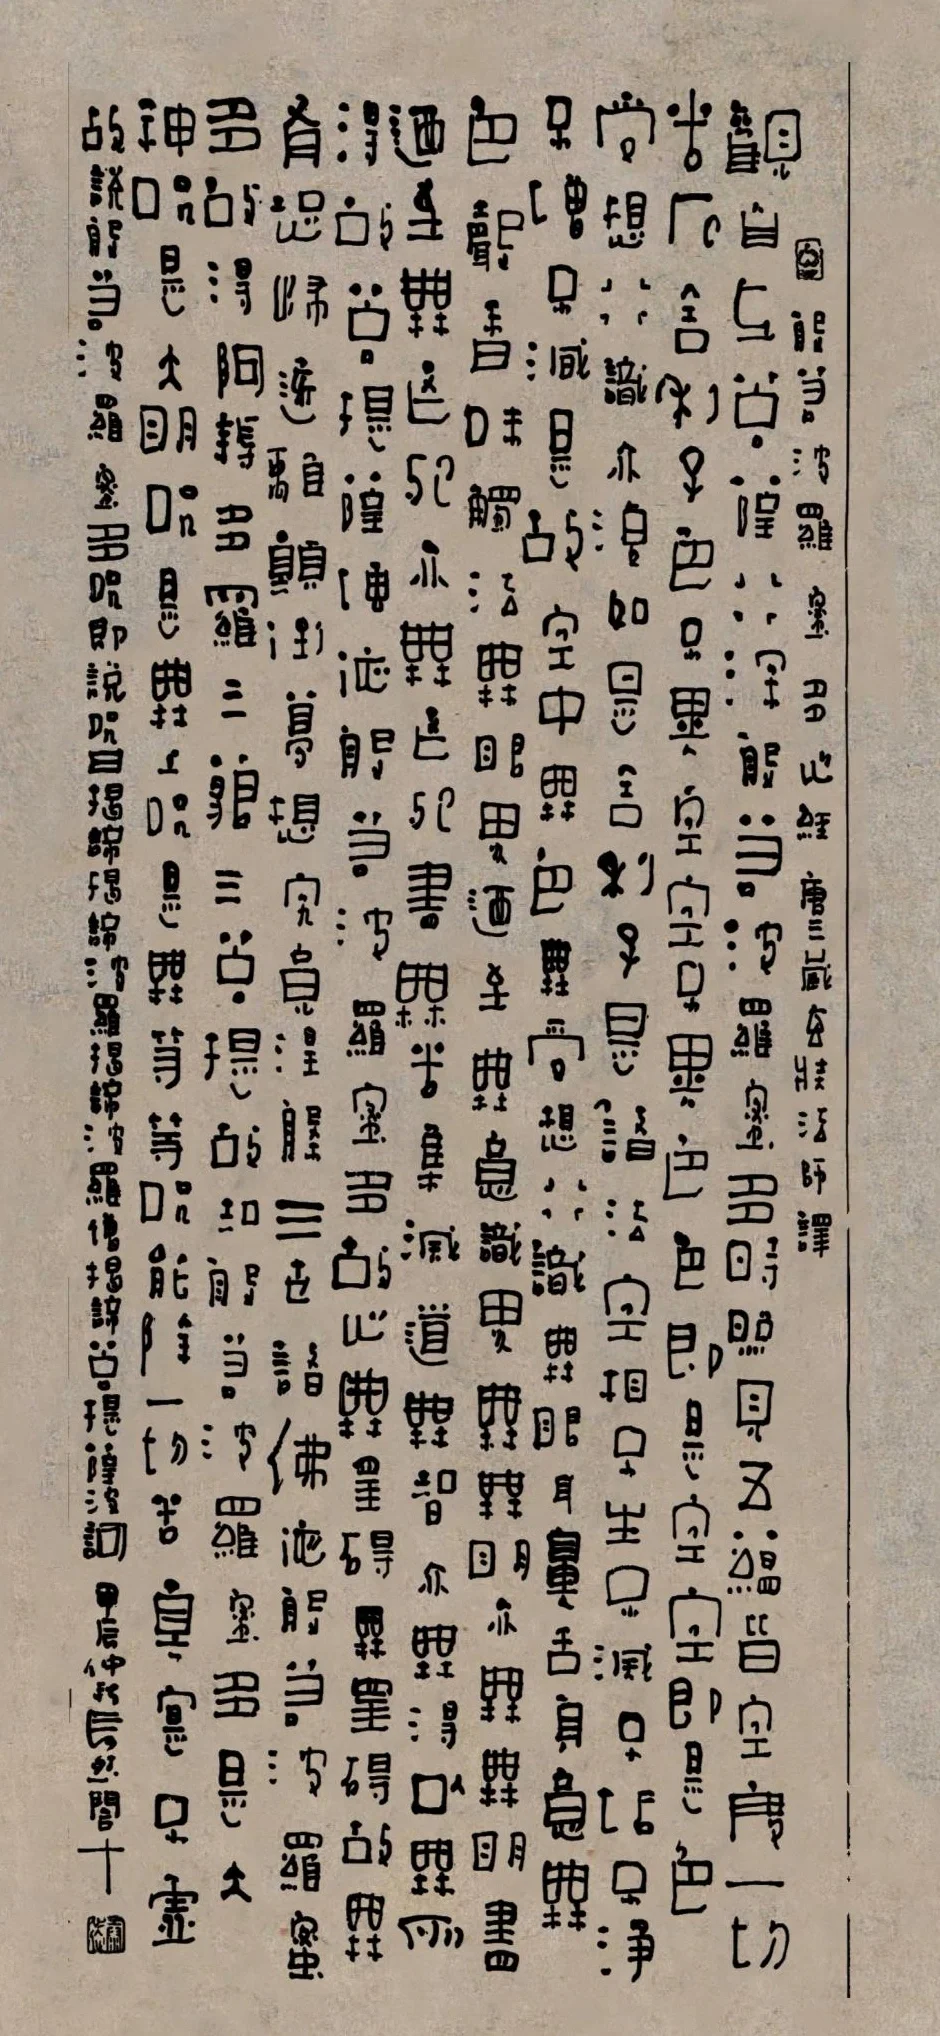 般若波羅蜜多心經 唐三藏玄奘法師譯
觀自在菩薩行深般若波羅蜜多時照見五蘊皆空度一切
苦厄舍利子色不異空空不異色色即是空空即是色
受想行識亦復如是舍利子是諸法空相不生不滅不垢不淨
不增不減是故空中無色無受想行識無眼耳鼻舌身意無
色聲香味觸法無眼界迺至無意識界無無明亦無無明盡
迺至無老死亦無老死盡無苦集滅道無智亦無得以無所
得故菩提薩埵依般若波羅蜜多故心無罣礙無罣礙故無
有恐怖遠離顛倒夢想究竟涅槃三世諸佛依般若波羅蜜
多故得阿耨多羅三藐三菩提故知般若波羅蜜多是大
神咒是大明咒是無上咒是無等等咒能除一切苦真實不虛
故說般若波羅蜜多咒即說咒曰揭諦揭諦波羅揭諦波羅僧揭諦菩提薩婆訶 甲辰仲秋